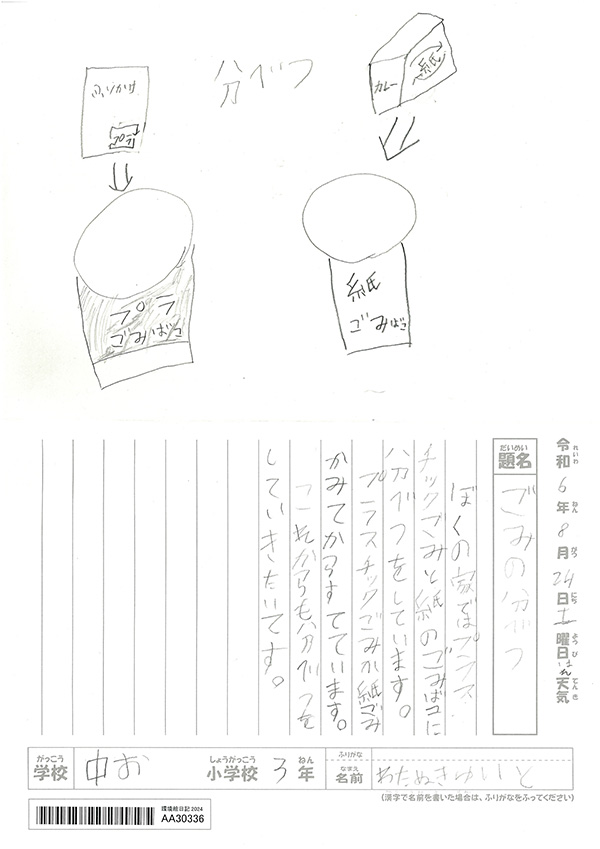 分べつ
ふりかけ
プラ
カレー
紙
プラ
ごみばこ
紙
ごみばこ
令和6年8月24日土曜日はれ天気
れいわ ねん がつ にち ようび てんき
だいめい
題名
ごみの分べつ
ぼくの家ではプラス
チックごみと紙のごみばコに
分べつをしています。
プラスチックごみか紙ごみ
かみてからすてています。
これからも分べつを
していきたいです。
がっこう
学校
中お
しょうがっこう
小学校
3
ねん
年
ふりがな
なまえ
名前
わたぬきゆいと
(漢字で名前を書いた場合は、ふりがなをふってください)
環境絵日記2024
AA30336